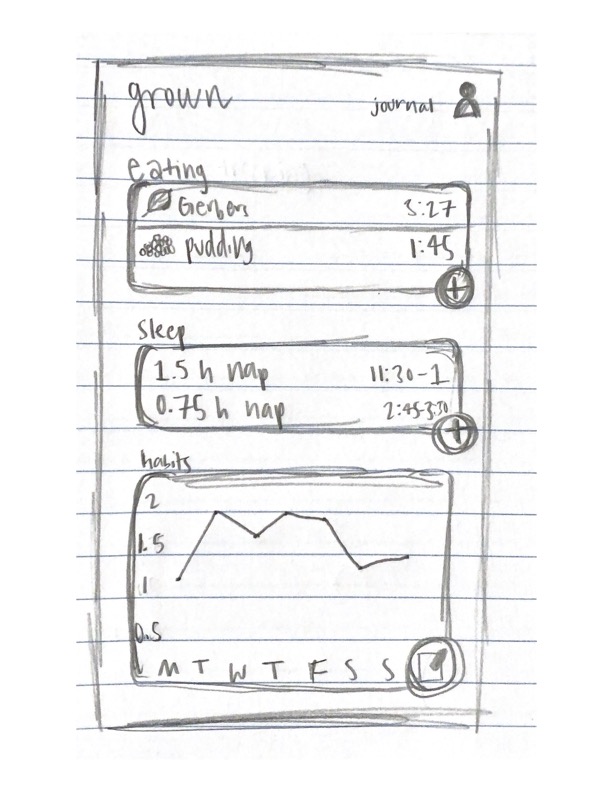 grown
journal
eating
Gerbers 3:27
pudding 1:45
sleep
1.5 h nap 11:30-1
0.75 h nap 2:45-3:30
habits
2
1.5
1
0.5
M T W T F S S